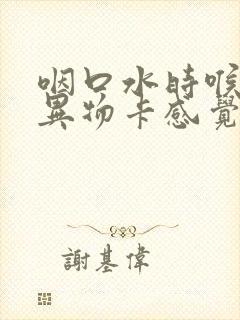 咽口水時喉
異物卡感覺
謝基偉